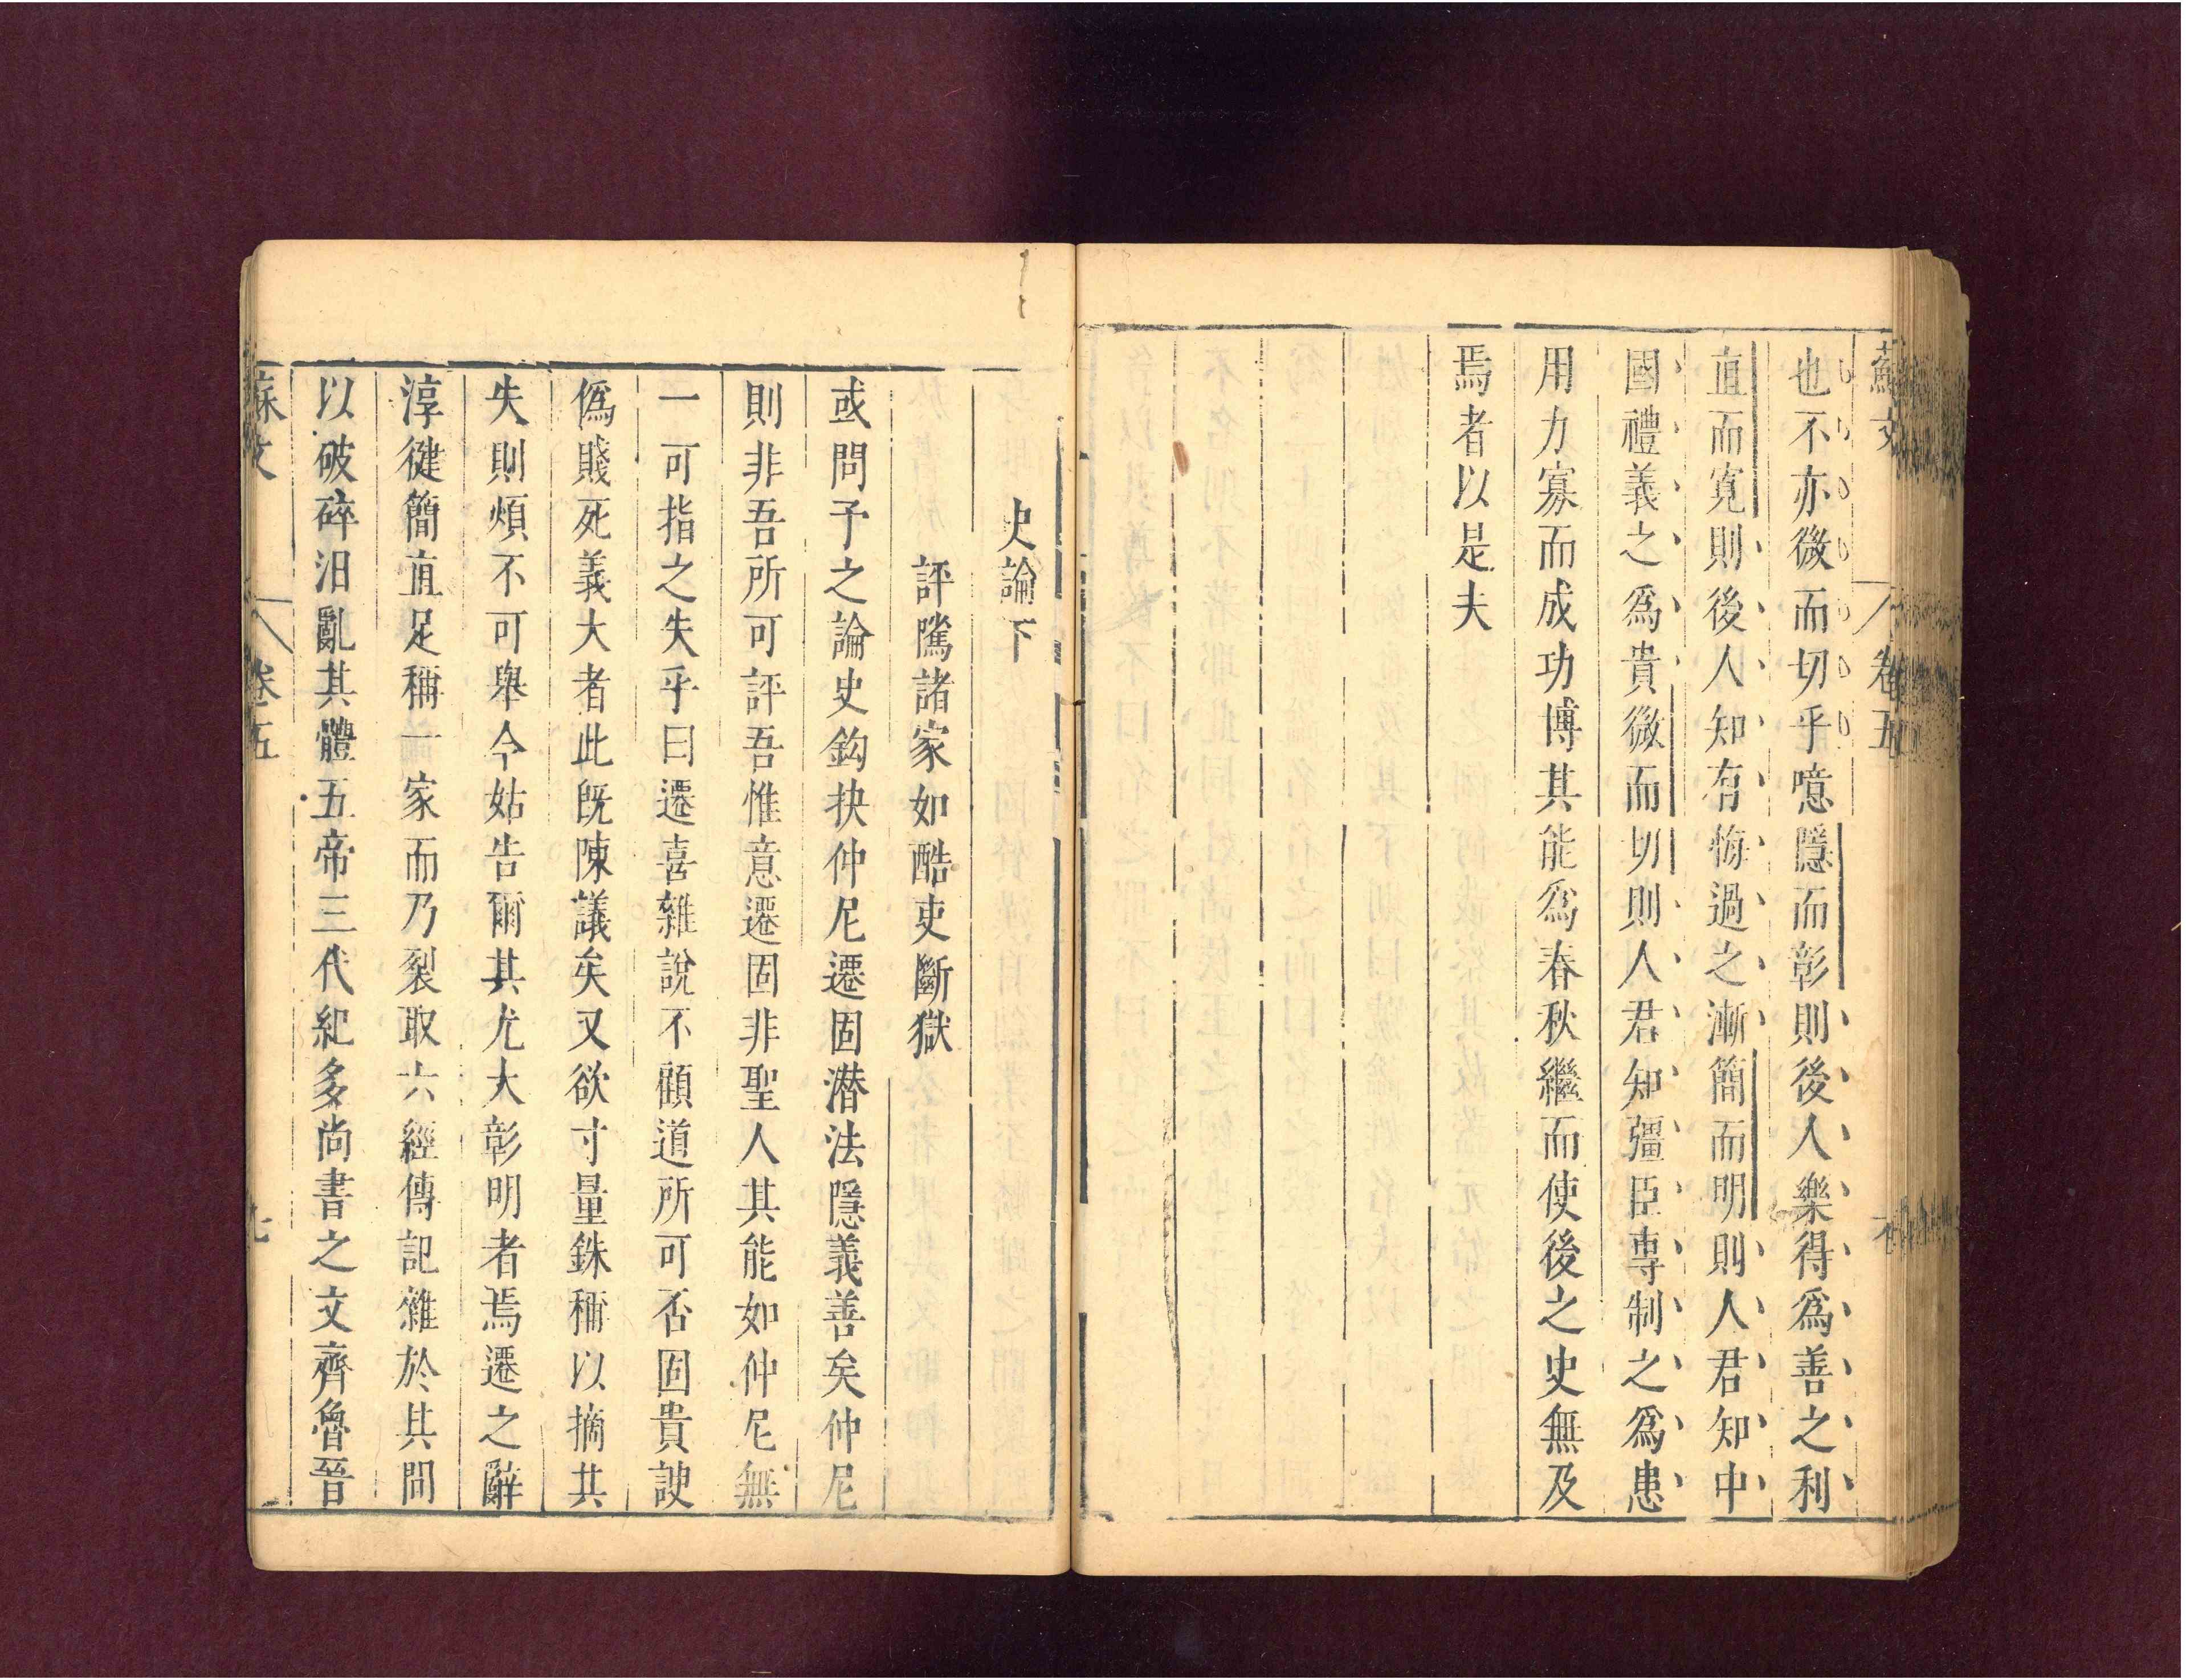 蘇文 卷五
也不亦微而切乎噫隱而彰則後人樂得爲善之利
直而寬則後人知有悔過之漸簡而明則人君知中
國禮義之爲貴微而切則人君知彊臣專制之爲患
用力寡而成功博其能爲春秋繼而使後之史無及
焉者以是夫
史論下
評騭諸家如酷吏斷獄
或問予之論史鈎抉仲尼遷固潜法隱義善矣仲尼
則非吾所可評吾惟意遷固非聖人其能如仲尼無
一可指之失乎曰遷喜雜說不顧道所可否固貴諛
僞賤死義大者此旣陳議矣又欲寸量銖稱以摘其
失則煩不可舉今姑告爾其尤大彰明者焉遷之辭
淳健簡直足稱一家而乃裂取六經傳記雜於其間
以破碎汨亂其體五帝三代紀多尚書之文齊魯晉
蘇文 卷五 七